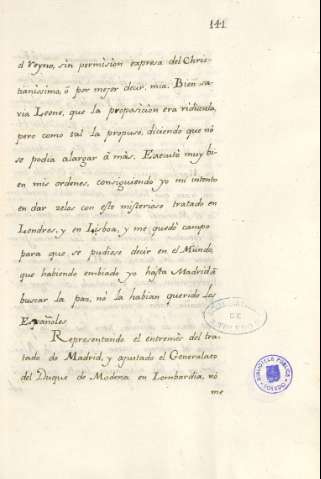 141
el Reyno, sin permision expresa del Chris-
tianissimo, ó por mejor decir, mia. Bien sa-
via Leone, que la proposicion era ridicula,
pero como tal la propuso, diciendo que nó
se podia alargar á más. Executó muy bi-
en mis ordenes, consiguiendo yo mi intento
en dar zelos con este misterioso tratado en
Londres, y en Lisboa, y me quedó campo
para que se pudiese decir en el Mundo,
que habiendo embiado yo hasta Madrid á
buscar la paz, nó la habian querido los
Españoles
Representando el entremés del tra-
tado de Madrid, y ajustado el Generalato
del Duque de Modena en Lombardia, nó
me
DE
TOLEDO
BIBLIOTECA PUBLICA
TOLEDO